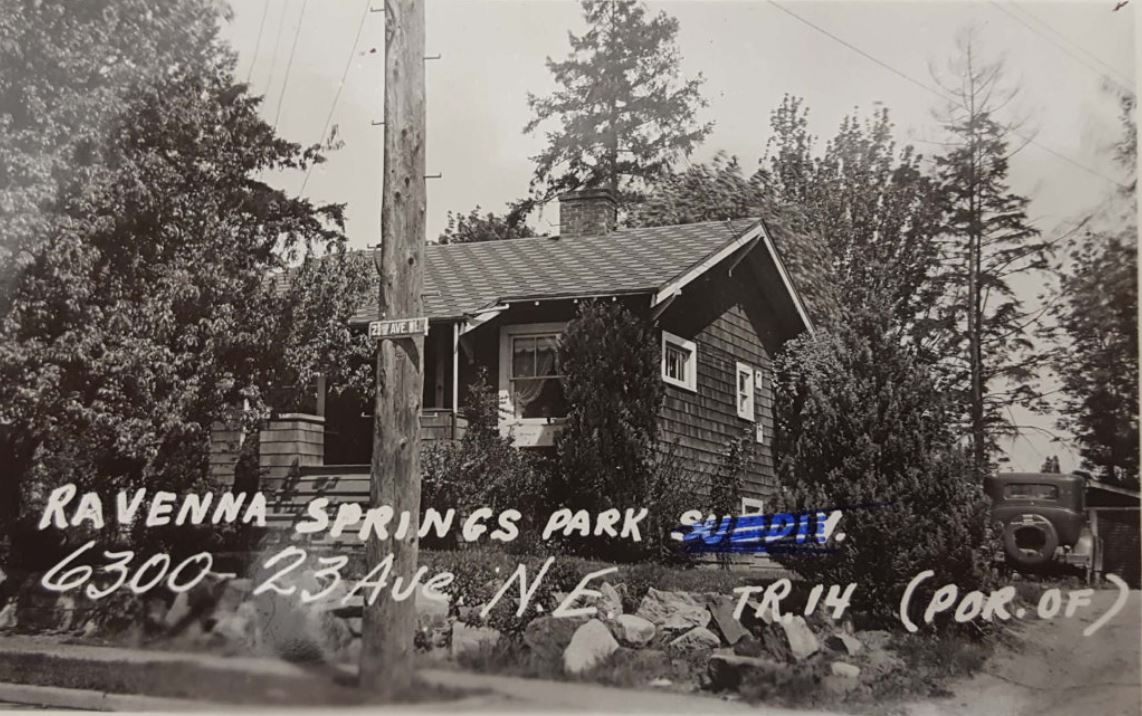 AVE.
RAVENNA SPRINGS PARK SUBDIV.
6300 - 23 AVE. N.E. TR. 14 (POR. OF)